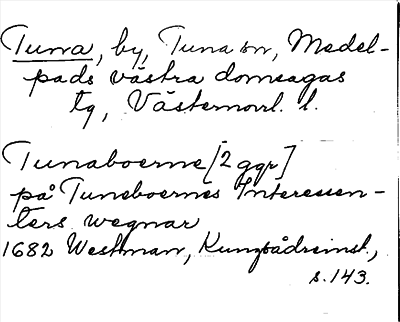 Tuna, by, Tuna sn, Medel-
pads västra domsagas
tg, Västernorrl. l.
Tunaboerne [2 ggr]
på Tuneboernes Interessen-
ters wegnar
1682 Westman, Kungsådreinst.,
s. 143.